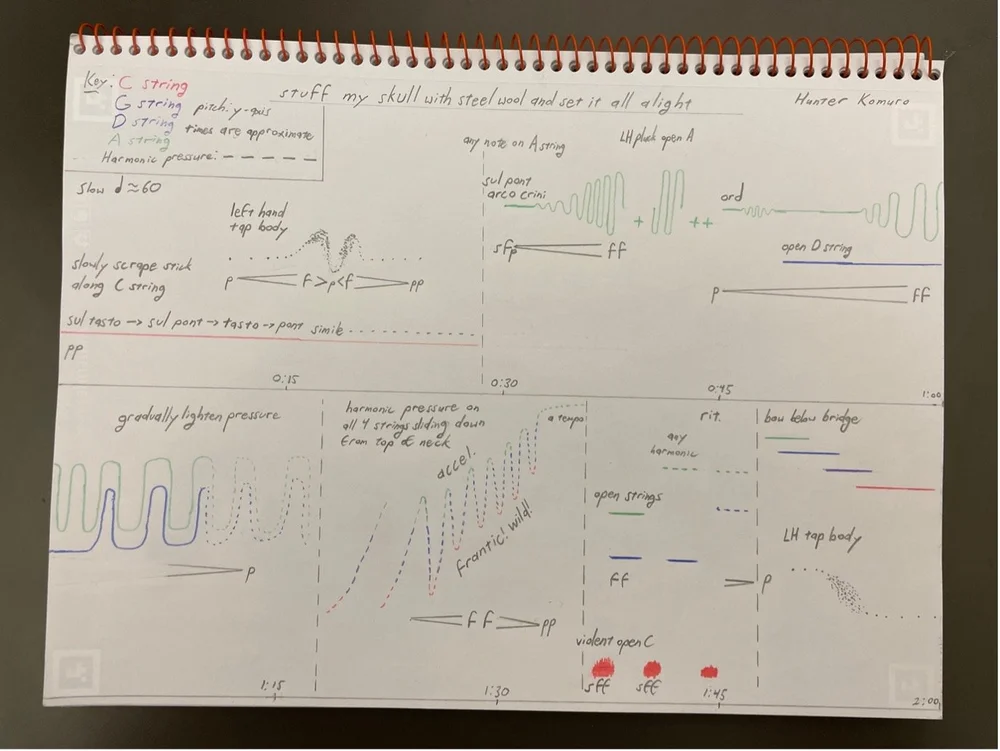 Key: C string
G string
D string
A string
pitch: y-axis
times are approximate
Harmonic pressure: — — — — —
stuff my skull with steel wool and set it all alight
Hunter Komuro
slow d ≈ 60
left hand
tap body
slowly scrape stick
along C string
p f > p < f pp
sul tasto → sul pont → tasto → pont simile
pp
0:15
any note on A string
LH pluck open A
sul pont
arco crini
+ ++
sfp ff
ord
open D string
p ff
0:30
0:45
1:00
gradually lighten pressure
p
1:15
harmonic pressure on
all 4 strings sliding down
from top of neck
a tempo
accel.
frantic! wild!
f f pp
1:30
rit.
any
harmonic
open strings
ff
p
violent open C
sff sff
1:45
bow below bridge
LH tap body
2:00